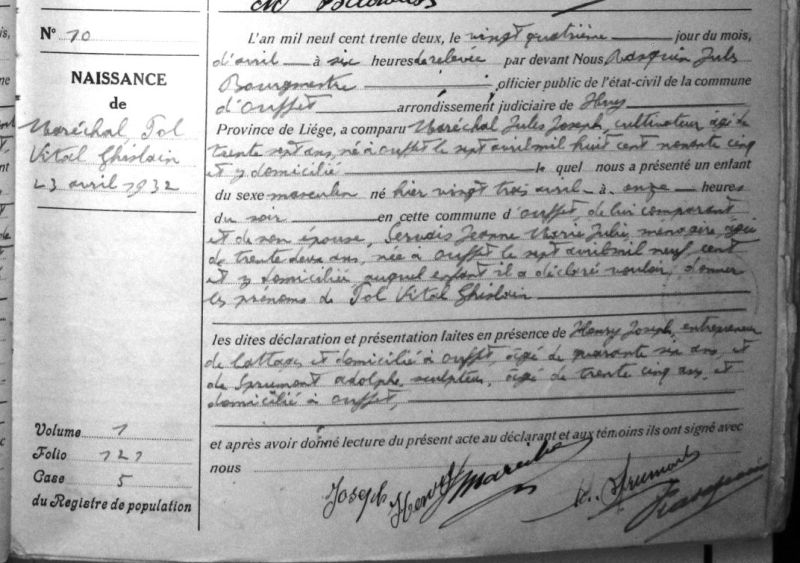 N° 10
NAISSANCE
de
Maréchal, Jol
Vital Ghislain
23 avril 1932
Volume 1
Folio 121
Case 5
du Registre de population
L'an mil neuf cent trente deux, le vingt quatrième jour du mois,
d'avril à six heures de relevée par devant Nous Rasquin Jules
Bourgmestre officier public de l'état-civil de la commune
d'Ouffet arrondissement judiciaire de Huy
Province de Liége, a comparu Maréchal Jules Joseph, cultivateur, âgé de
trente sept ans, né à Ouffet le sept avril mil huit cent nonante cinq
et y domicilié le quel nous a présenté un enfant
du sexe masculin né hier vingt trois avril à onze heures
du soir en cette commune d'Ouffet, de lui comparant
et de son épouse, Servais Jeanne Marie Julie, ménagère, âgée
de trente deux ans, née à Ouffet le sept avril mil neuf cent
et y domiciliée auquel enfant il a déclaré vouloir donner
les prénoms de Jol Vital Ghislain
les dites déclaration et présentation faites en présence de Henry Joseph, entrepreneur
de battage et domicilié à Ouffet, âgé de quarante six ans, et
de Sprumont Adolphe sculpteur, âgé de trente cinq ans, et
domicilié à Ouffet,
et après avoir donné lecture du présent acte au déclarant et aux témoins ils ont signé avec
nous
Joseph Henry Maréchal A. Sprumont Rasquin